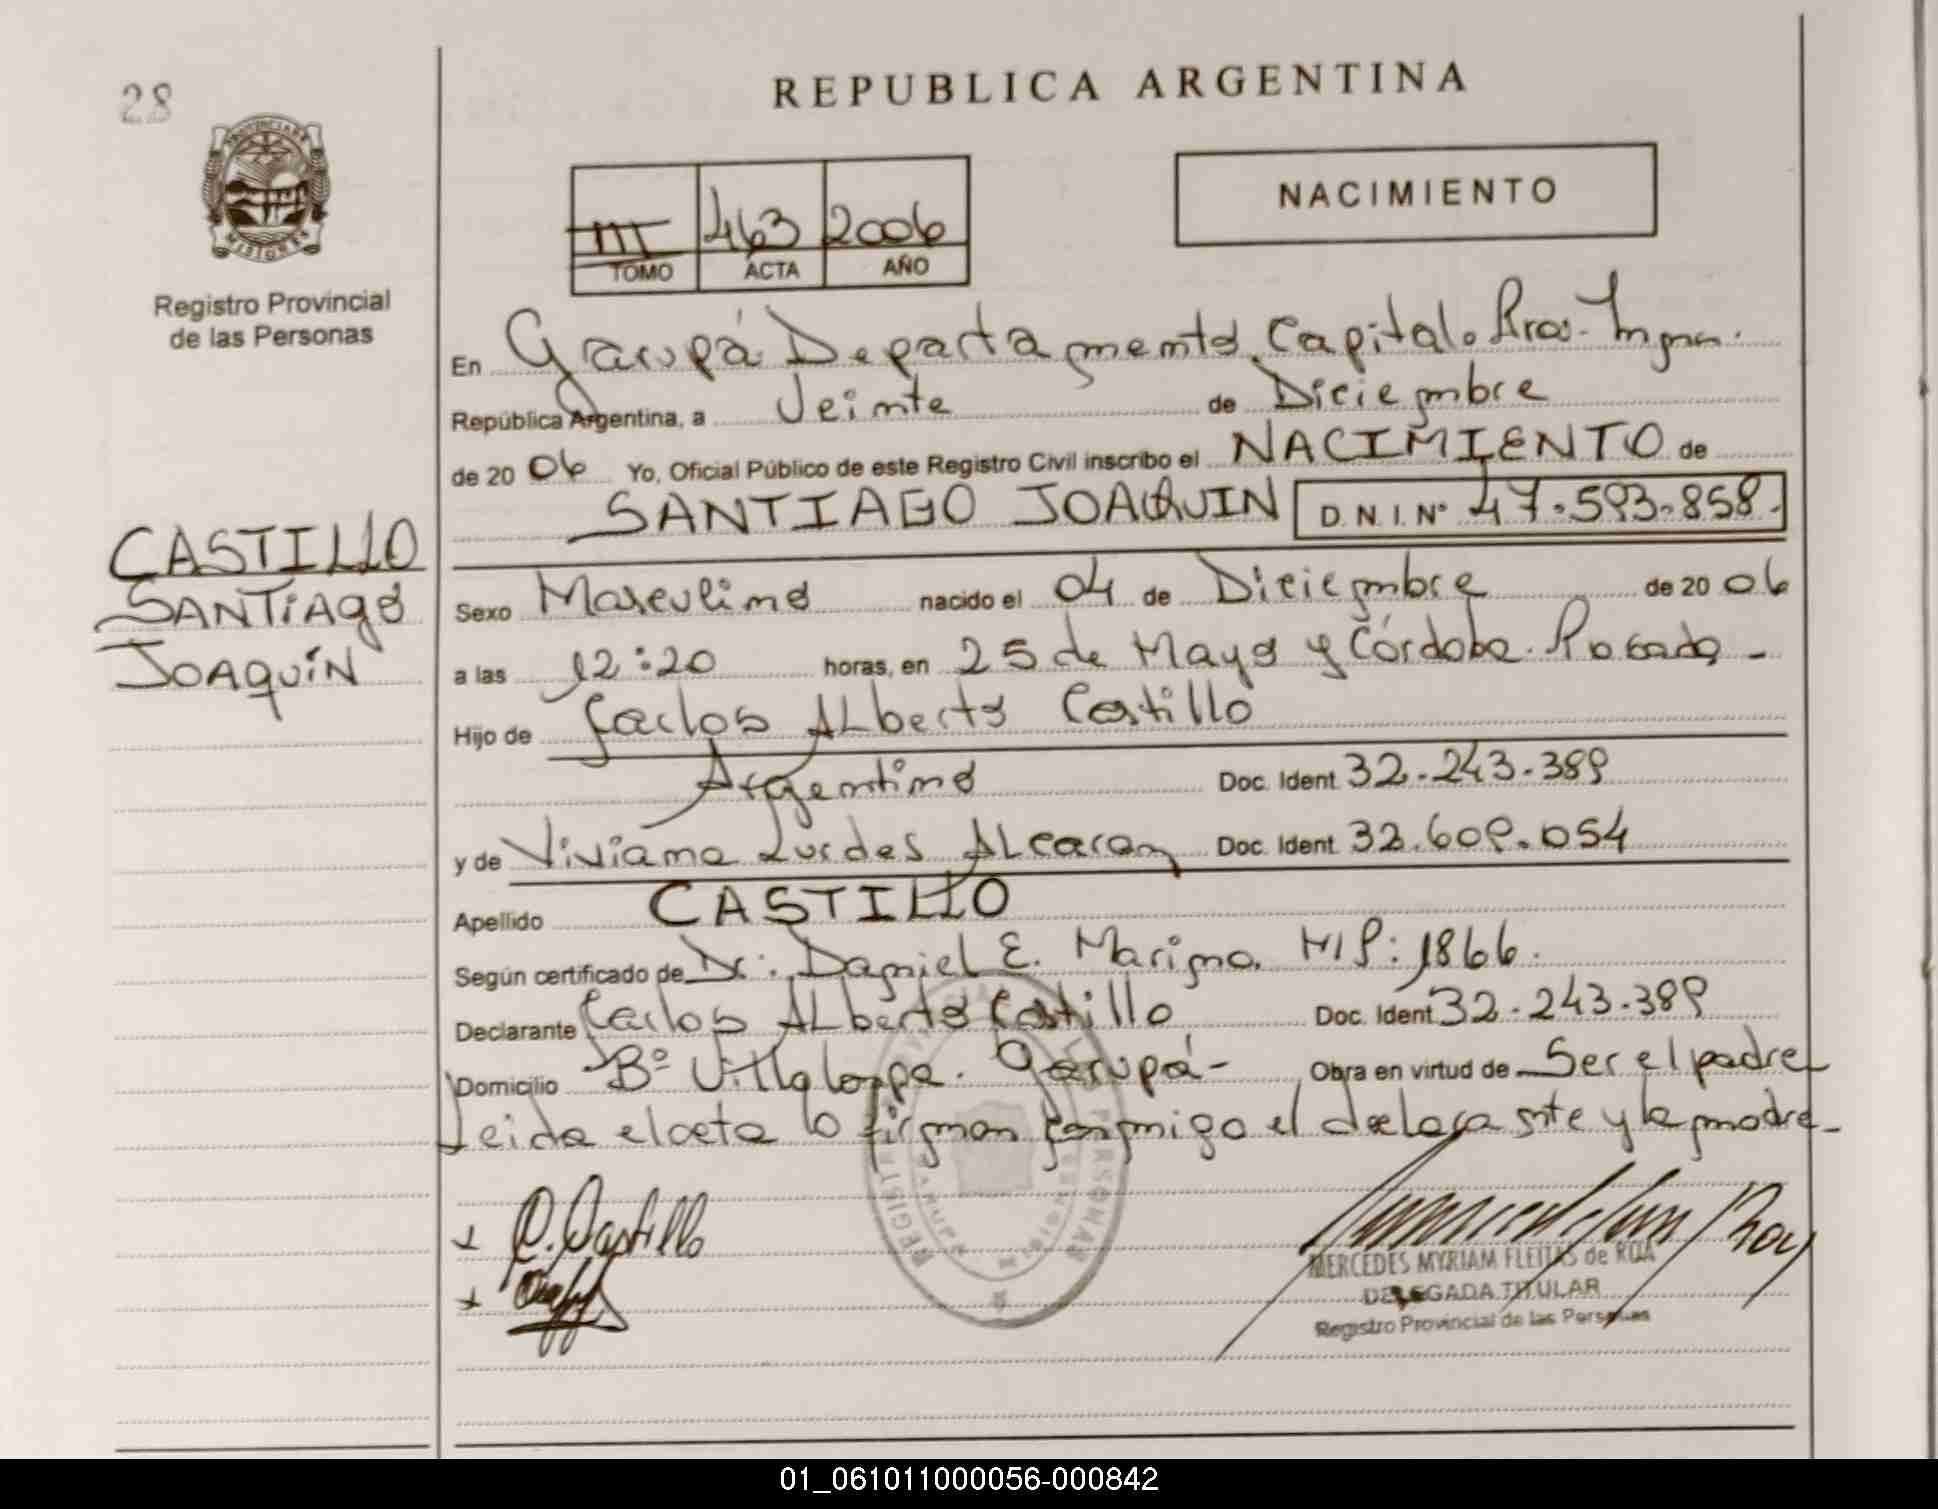 28
REPUBLICA ARGENTINA
PROVINCIA DE
MISIONES
Registro Provincial
de las Personas
III 463 2006
TOMO ACTA AÑO
NACIMIENTO
En Garupá Departamento Capital. Pros.
República Argentina, a Veinte de Diciembre
de 20 06 Yo, Oficial Público de este Registro Civil inscribo el NACIMIENTO de
SANTIAGO JOAQUIN D.N.I. Nº 47.593.858.
CASTILLO
SANTIAGO
JOAQUIN
Sexo Masculino nacido el 04 de Diciembre de 20 06
a las 12:20 horas, en 25 de Mayo y Córdoba. Posadas -
Hijo de Carlos Alberto Castillo
Argentino Doc. Ident. 32.243.389
y de Viviana Lurdes Alcaraz Doc. Ident. 32.609.054
Apellido CASTILLO
Según certificado de Dr. Daniel E. Marigno. M/P: 1866.
Declarante Carlos Alberto Castillo Doc. Ident. 32.243.389
Domicilio Bº Villalonga. Garupá - Obra en virtud de Ser el padre
Leida el acta lo firman conmigo el declarante y la madre -
x C. Castillo
x
MERCEDES MYRIAM FLEITAS de ROA
DELEGADA TITULAR
Registro Provincial de las Personas
01_061011000056-000842